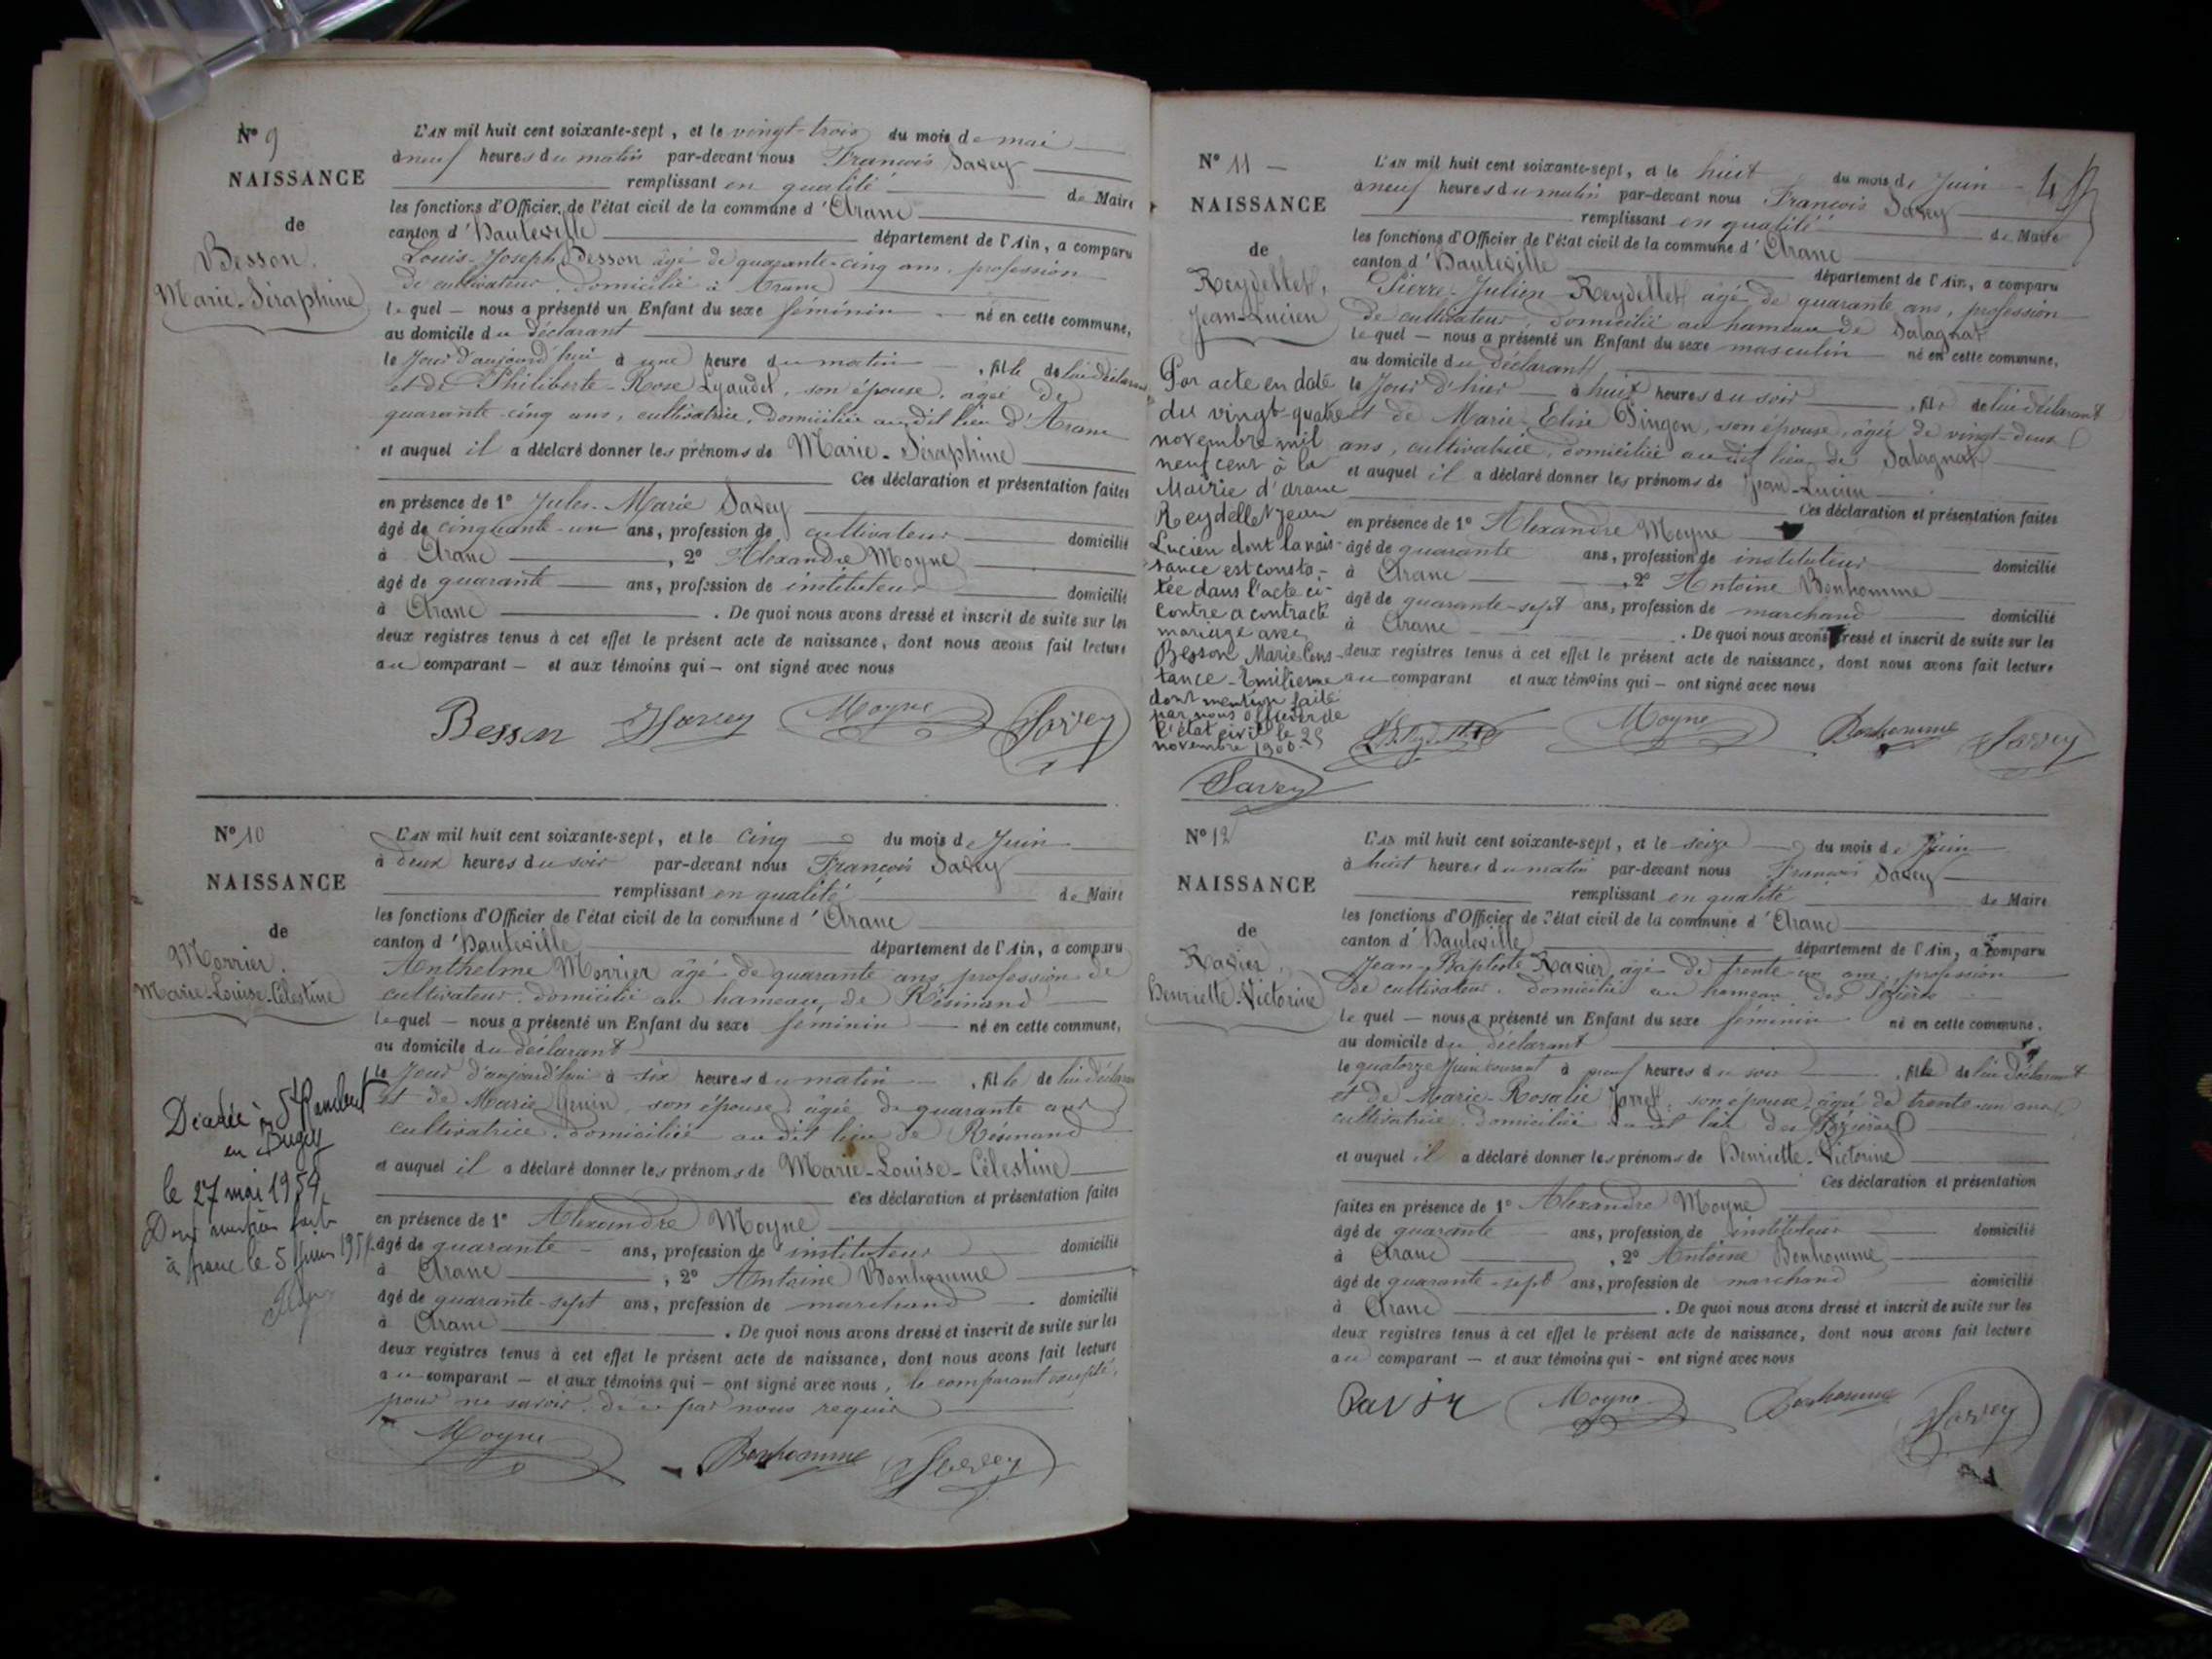 N° 9
NAISSANCE
de
Besson,
Marie-Séraphine
L'AN mil huit cent soixante-sept, et le vingt-trois du mois de mai
à neuf heures du matin par-devant nous François Savey
remplissant en qualité de Maire
les fonctions d'Officier de l'état civil de la commune d'Aranc
canton d'Hauteville département de l'Ain, a comparu
Louis-Joseph Besson âgé de quarante-cinq ans, profession
de cultivateur, domicilié à Aranc
lequel — nous a présenté un Enfant du sexe féminin né en cette commune,
au domicile du déclarant
le Jour d'aujourd'hui à une heure du matin, fille de lui déclarant
et de Philiberte-Rose Lyaudet, son épouse, âgée de
quarante-cinq ans, cultivatrice, domiciliée audit lieu d'Aranc
et auquel il a déclaré donner les prénoms de Marie-Séraphine
Ces déclaration et présentation faites
en présence de 1° Jules-Marie Savey
âgé de cinquante-un ans, profession de cultivateur domicilié
à Aranc, 2° Alexandre Moyne
âgé de quarante ans, profession de instituteur domicilié
à Aranc. De quoi nous avons dressé et inscrit de suite sur les
deux registres tenus à cet effet le présent acte de naissance, dont nous avons fait lecture
au comparant — et aux témoins qui — ont signé avec nous
Besson Savey Moyne Savey
N° 10
NAISSANCE
de
Morrier,
Marie-Louise-Célestine
Décédée à St Rambert
en Bugey
le 27 mai 1959,
Dont mention faite
à Aranc le 5 Juin
L'AN mil huit cent soixante-sept, et le cinq du mois de Juin
à deux heures du soir par-devant nous François Savey
remplissant en qualité de Maire
les fonctions d'Officier de l'état civil de la commune d'Aranc
canton d'Hauteville département de l'Ain, a comparu
Anthelme Morrier âgé de quarante ans, profession de
cultivateur, domicilié au hameau de Résinand
lequel — nous a présenté un Enfant du sexe féminin — né en cette commune,
au domicile du déclarant
le Jour d'aujourd'hui à six heures du matin, fille de lui déclarant
et de Marie son épouse, âgée de quarante ans
cultivatrice, domiciliée audit lieu de Résinand
et auquel il a déclaré donner les prénoms de Marie-Louise-Célestine
Ces déclaration et présentation faites
en présence de 1° Alexandre Moyne
âgé de quarante ans, profession de instituteur domicilié
à Aranc, 2° Antoine Bonhomme
âgé de quarante-sept ans, profession de marchand domicilié
à Aranc. De quoi nous avons dressé et inscrit de suite sur les
deux registres tenus à cet effet le présent acte de naissance, dont nous avons fait lecture
au comparant — et aux témoins qui — ont signé avec nous, le comparant excepté,
pour ne savoir, de ce par nous requis
Moyne Bonhomme Savey
N° 11
NAISSANCE
de
Reydellet,
Jean-Lucien
Par acte en date
du vingt-quatre
novembre mil
neuf cent à la
Mairie d'Aranc
Reydellet Jean
Lucien dont la nais-
sance est consta-
tée dans l'acte ci-
contre a contracté
mariage avec
Besson Marie Cons-
tance-Emilienne
dont mention faite
par nous officier de
l'état civil le 25
novembre 1900
Savey
L'AN mil huit cent soixante-sept, et le huit du mois de Juin 4
à neuf heures du matin par-devant nous François Savey
remplissant en qualité de Maire
les fonctions d'Officier de l'état civil de la commune d'Aranc
canton d'Hauteville département de l'Ain, a comparu
Pierre-Julien Reydellet âgé de quarante ans, profession
de cultivateur, domicilié au hameau de
lequel — nous a présenté un Enfant du sexe masculin né en cette commune,
au domicile du déclarant
le Jour d'hier à huit heures du soir, fils de lui déclarant
et de Marie-Elise son épouse, âgée de vingt-deux
ans, cultivatrice, domiciliée audit lieu de
et auquel il a déclaré donner les prénoms de Jean-Lucien
Ces déclaration et présentation faites
en présence de 1° Alexandre Moyne
âgé de quarante ans, profession de instituteur domicilié
à Aranc, 2° Antoine Bonhomme
âgé de quarante-sept ans, profession de marchand domicilié
à Aranc. De quoi nous avons dressé et inscrit de suite sur les
deux registres tenus à cet effet le présent acte de naissance, dont nous avons fait lecture
au comparant et aux témoins qui — ont signé avec nous
Moyne Bonhomme Savey
N° 12
NAISSANCE
de
Ravier,
Henriette-Victorine
L'AN mil huit cent soixante-sept, et le seize du mois de Juin
à huit heures du matin par-devant nous François Savey
remplissant en qualité de Maire
les fonctions d'Officier de l'état civil de la commune d'Aranc
canton d'Hauteville département de l'Ain, a comparu
Jean-Baptiste Ravier âgé de trente-un ans, profession
de cultivateur, domicilié au hameau des
lequel — nous a présenté un Enfant du sexe féminin né en cette commune,
au domicile du déclarant
le quatorze Juin courant à neuf heures du soir, fille de lui déclarant
et de Marie-Rosalie son épouse, âgée de trente-un ans
cultivatrice, domiciliée audit lieu des
et auquel il a déclaré donner les prénoms de Henriette-Victorine
Ces déclaration et présentation
faites en présence de 1° Alexandre Moyne
âgé de quarante ans, profession de instituteur domicilié
à Aranc, 2° Antoine Bonhomme
âgé de quarante-sept ans, profession de marchand domicilié
à Aranc. De quoi nous avons dressé et inscrit de suite sur les
deux registres tenus à cet effet le présent acte de naissance, dont nous avons fait lecture
au comparant — et aux témoins qui — ont signé avec nous
Ravier Moyne Bonhomme Savey